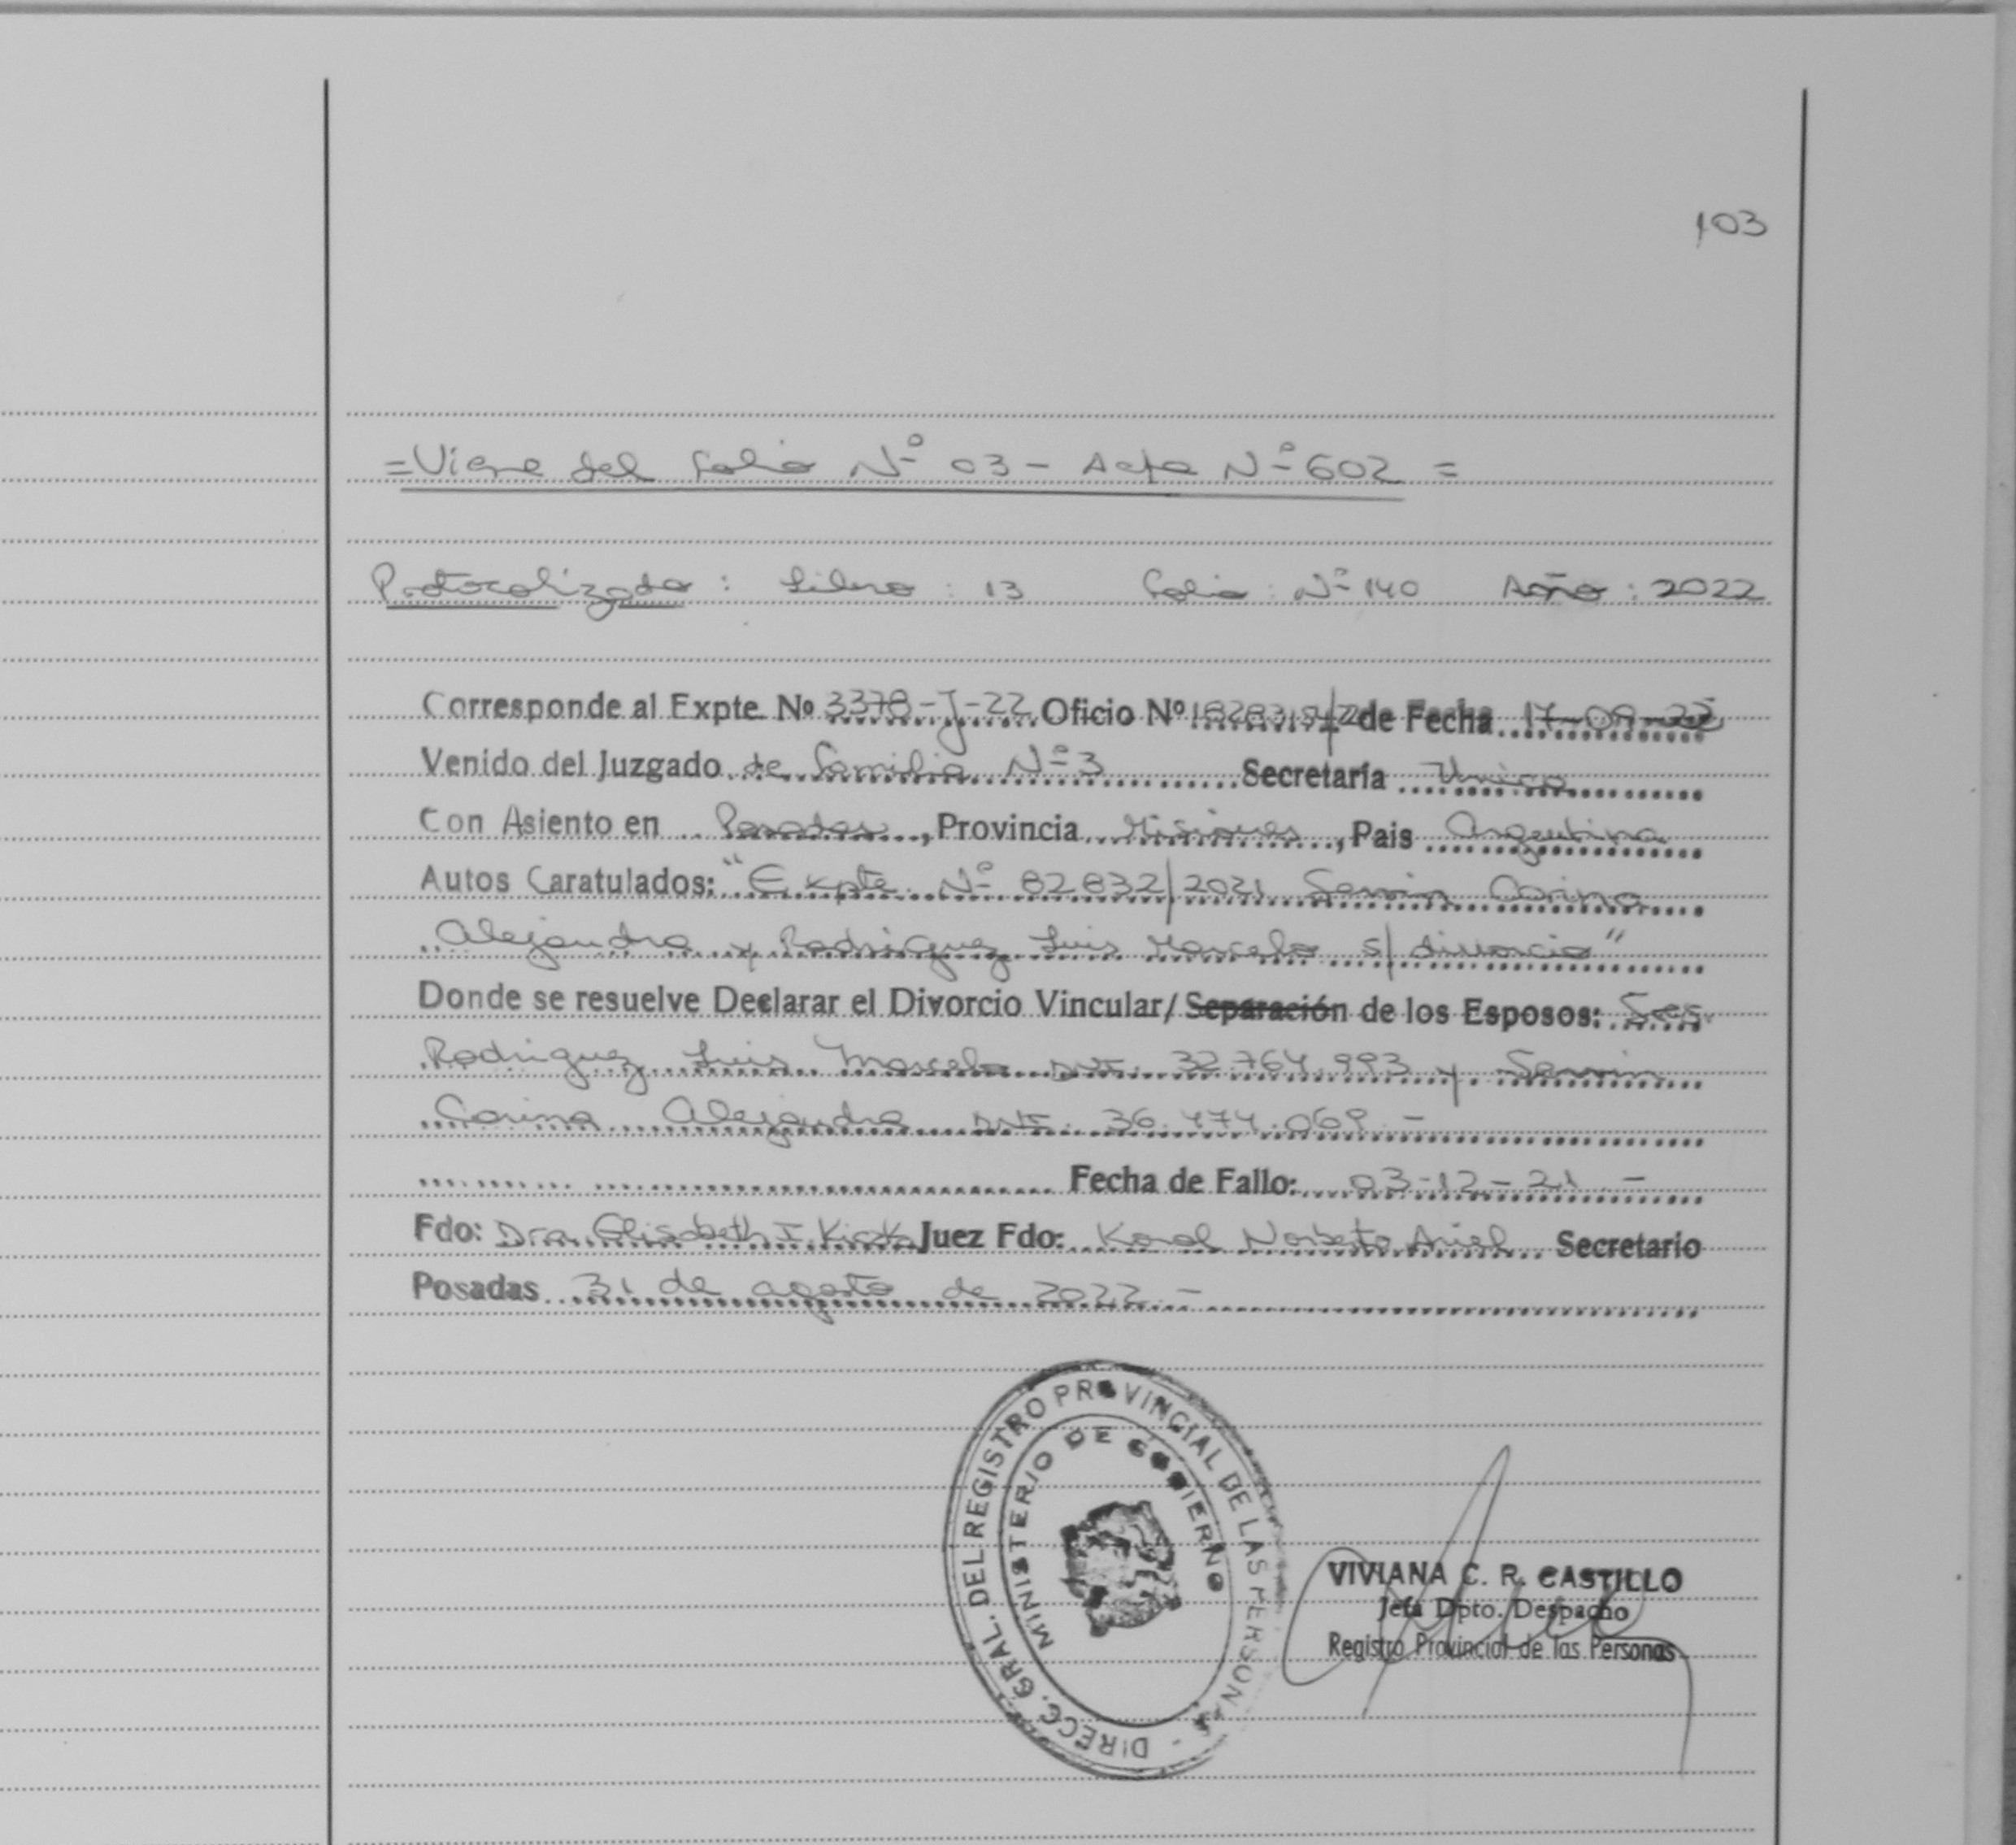 103
=Viene del folio Nº 03 - Acta Nº 602 =
Protocolizado : Libro : 13 Folio : Nº 140 Año : 2022
Corresponde al Expte Nº 3378-J-22 Oficio Nº de Fecha 17-08-22
Venido del Juzgado de Familia Nº 3 Secretaría Única
Con Asiento en Posadas, Provincia Misiones, Pais Argentina
Autos Caratulados: "Expte. Nº 82832/2021 Carina
Alejandra y Rodriguez Luis Marcelo s/ divorcio"
Donde se resuelve Declarar el Divorcio Vincular/Separación de los Esposos: Sres.
Rodriguez Luis Marcelo DNI. 32.764.993 y
Carina Alejandra DNI. 36.474.069 -
Fecha de Fallo: 03-12-21 -
Fdo: Dra. Elisabeth I. Juez Fdo: Korol Norberto Ariel Secretario
Posadas 31 de agosto de 2022.-
DIRECC. GRAL. DEL REGISTRO PROVINCIAL DE LAS PERSONAS -
MINISTERIO DE GOBIERNO
VIVIANA C. R. CASTILLO
Jefa Dpto. Despacho
Registro Provincial de las Personas